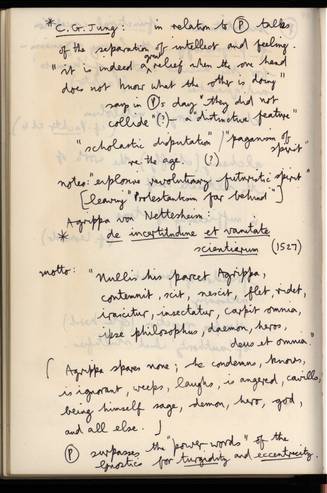 * C. G. Jung : in relation to (P) talks
of the separation of intellect and feeling.
"it is indeed a great relief when the one hand
does not know what the other is doing"
says in (P)s day "they did not
collide" (?) – a distinctive feature"
"scholastic disputation" / "paganism of spirit"
re. the age. (?)
notes: "explosive revolutionary futuristic spirit"
["leaving" Protestantism far behind"]
Agrippa von Nettesheim:
* de incertitudine et vanitate
scientiarum (1527)
motto: "Nullis his parcet Agrippa,
contemnit, scit, nescit, flet, ridet,
irascitur, insectatur, carpit omnia,
ipse philosophus, daemon, heros,
deus et omnia."
[ Agrippa spares none; he condemns, knows,
is ignorant, weeps, laughs, is angered, cavills,
being himself sage, demon, hero, god,
and all else. ]
(P) surpasses the "power words" of the
Gnostics for turgidity and eccentricity.